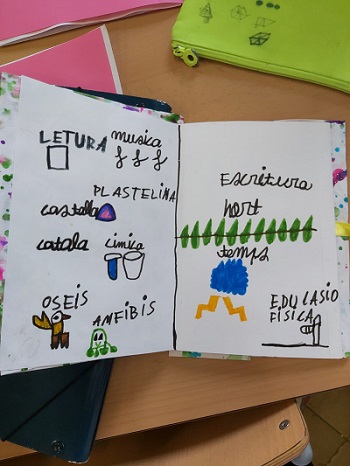 LETURA
musica
PLASTELINA
castella
catala
cimica
OSEIS
ANFIBIS
Escritura
hort
temps
EDUCASIO
FISICA